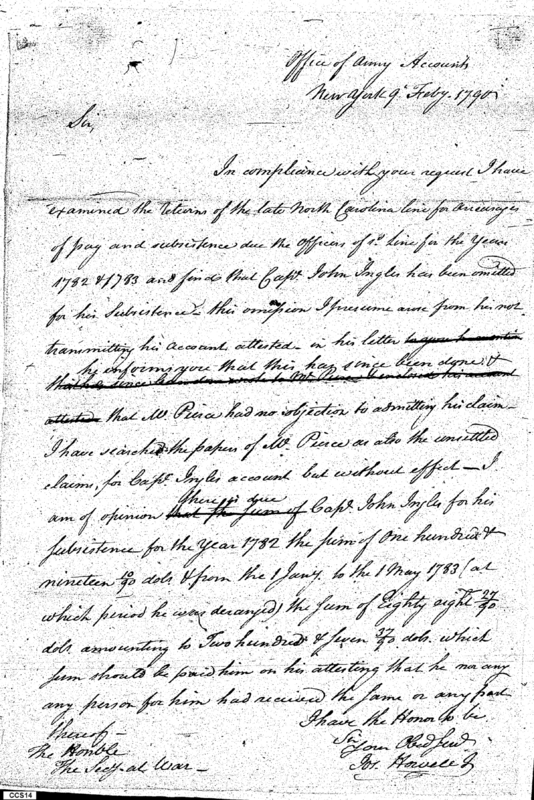 Office of Army Accounts
New York 9 Feby. 1790
Sir,
In compliance with your request I have
examined the returns of the late North Carolina line for arrearages
of pay and subsistence due the Officers of sd. line for the Years
1782 & 1783 and find that Capt. John Ingles has been omitted
for his Subsistence - this omission I presume arose from his not
transmitting his account attested - in his letter
he informs you that this has since been done &
attested that Mr. Pierce had no objection to admitting his claim -
I have searched the papers of Mr. Pierce as also the unsettled
claims, for Capt. Ingles account but without effect - I
there is due
am of opinion that the sum of Capt. John Ingles for his
subsistence for the Year 1782 the sum of One hundred &
nineteen dols & from the 1 Jany. to the 1 May 1783 (at
which period he was deranged) the sum of Eighty eight 27/90
dols amounting to Two hundred & seven 27/90 dols. which
sum should be paid him on his attesting that he nor any
any person for him had received the same or any part
thereof -
I have the Honor to be
Sir
Your Obed Servt
Jos. Howell Jr
The Honble
The Secy. at War -
CCS14